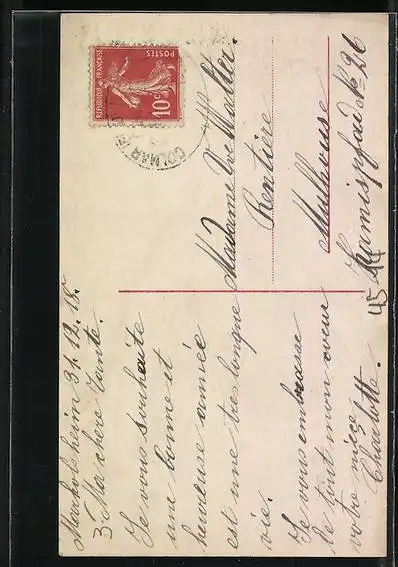 Markolsheim 31.12.18.
Ma chère Tante.
Je vous souhaite
une bonne et
heureuse année
est une tres longue
vie.
Je vous embrasse
de tout mon coeur
votre nièce
Charlotte.
REPUBLIQUE FRANÇAISE
POSTES
10c
COLMAR
Madame Vve Walter.
Rentière
Mulhouse
45